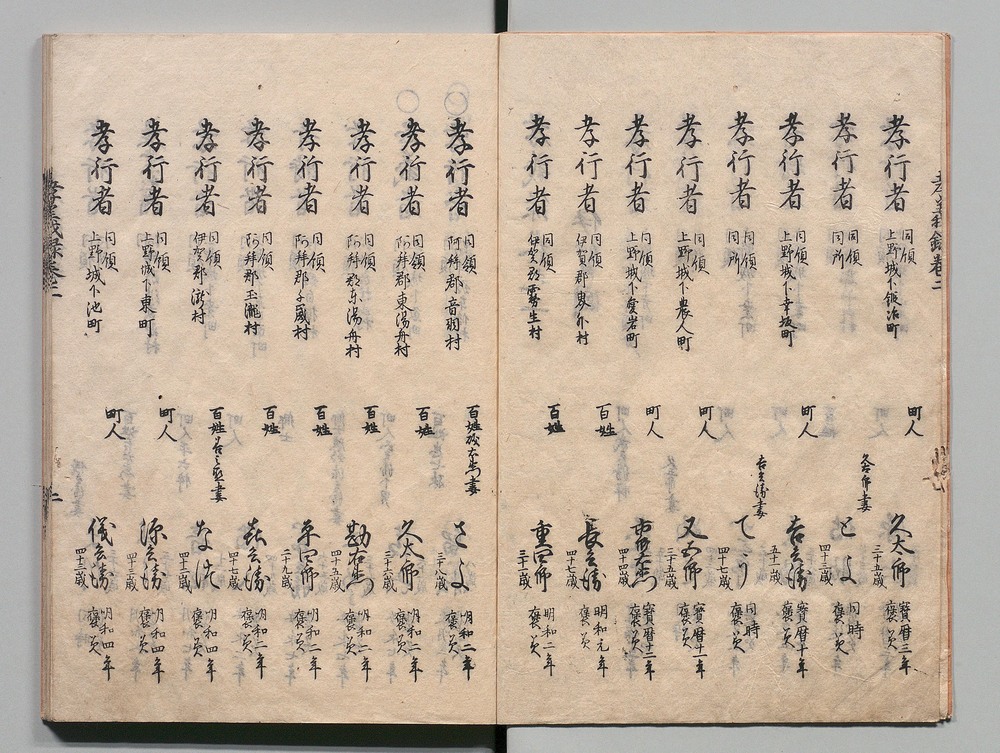 孝行者 同領 上野城下鍛冶町 町人 久太郎 三十五歳 寳暦三年 褒美
孝行者 同領 同所 久太郎妻 とよ 四十三歳 同時 褒美
孝行者 同領 上野城下幸坂町 町人 吉兵衛 五十一歳 寳暦十年 褒美
孝行者 同領 同所 吉兵衛妻 てう 四十七歳 同時 褒美
孝行者 同領 上野城下農人町 町人 又四郎 三十五歳 寳暦十一年 褒美
孝行者 同領 上野城下愛岩町 町人 四十四歳 寳暦十二年 褒美
孝行者 同領 伊賀郡 百姓 長兵衛 四十七歳 明和元年 褒美
孝行者 同領 伊賀郡霧生村 百姓 重四郎 三十歳 明和二年 褒美
孝行者 同領 阿拜郡音羽村 百姓 妻 さよ 三十八歳 明和二年 褒美
孝行者 同領 阿拜郡東湯舟村 百姓 久太郎 三十二歳 明和二年 褒美
孝行者 同領 阿拜郡東湯舟村 百姓 勘右衛門 四十五歳 明和二年 褒美
孝行者 同領 阿拜郡 村 百姓 平四郎 二十九歳 明和二年 褒美
孝行者 同領 阿拜郡玉瀧村 百姓 喜兵衛 四十七歳 明和二年 褒美
孝行者 同領 伊賀郡瀧村 百姓 妻 なつ 四十三歳 明和四年 褒美
孝行者 同領 上野城下東町 町人 源兵衛 四十三歳 明和四年 褒美
孝行者 同領 上野城下池町 町人 儀兵衛 四十三歳 明和四年 褒美
孝義録卷二
二